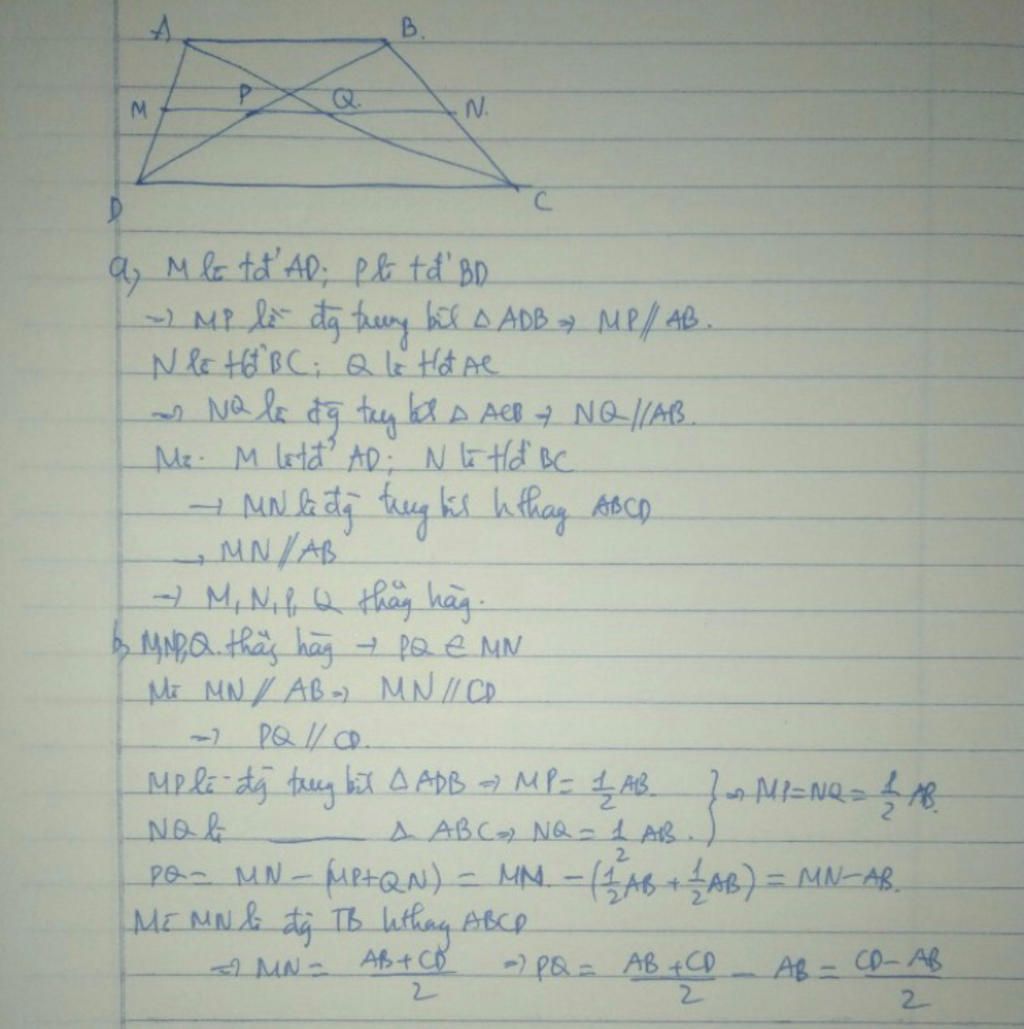 A B.
M P Q. N.
D C
a, M là tđ' AD; P là tđ' BD
→ MP là đg trung bìl △ ADB → MP // AB.
N là tđ' BC; Q là tđ AC
→ NQ là đg tug bìl △ ACB → NQ // AB.
Mà. M là tđ' AD; N là tđ' BC
→ MN là đg trug bìl hthag ABCD
→ MN // AB
→ M, N, P, Q thẳg hàg.
b, M,N,P,Q. thẳg hàg → PQ ∈ MN
Mà MN // AB → MN // CD
→ PQ // CD.
MP là đg trug bìl △ ADB → MP = 1/2 AB. } → MP = NQ = 1/2 AB.
NQ là ——— △ ABC → NQ = 1/2 AB.
PQ = MN - (MP+QN) = MN. - (1/2 AB + 1/2 AB) = MN - AB.
Mà MN là đg TB hthag ABCD
→ MN = AB + CD / 2 → PQ = AB + CD / 2 - AB = CD - AB / 2